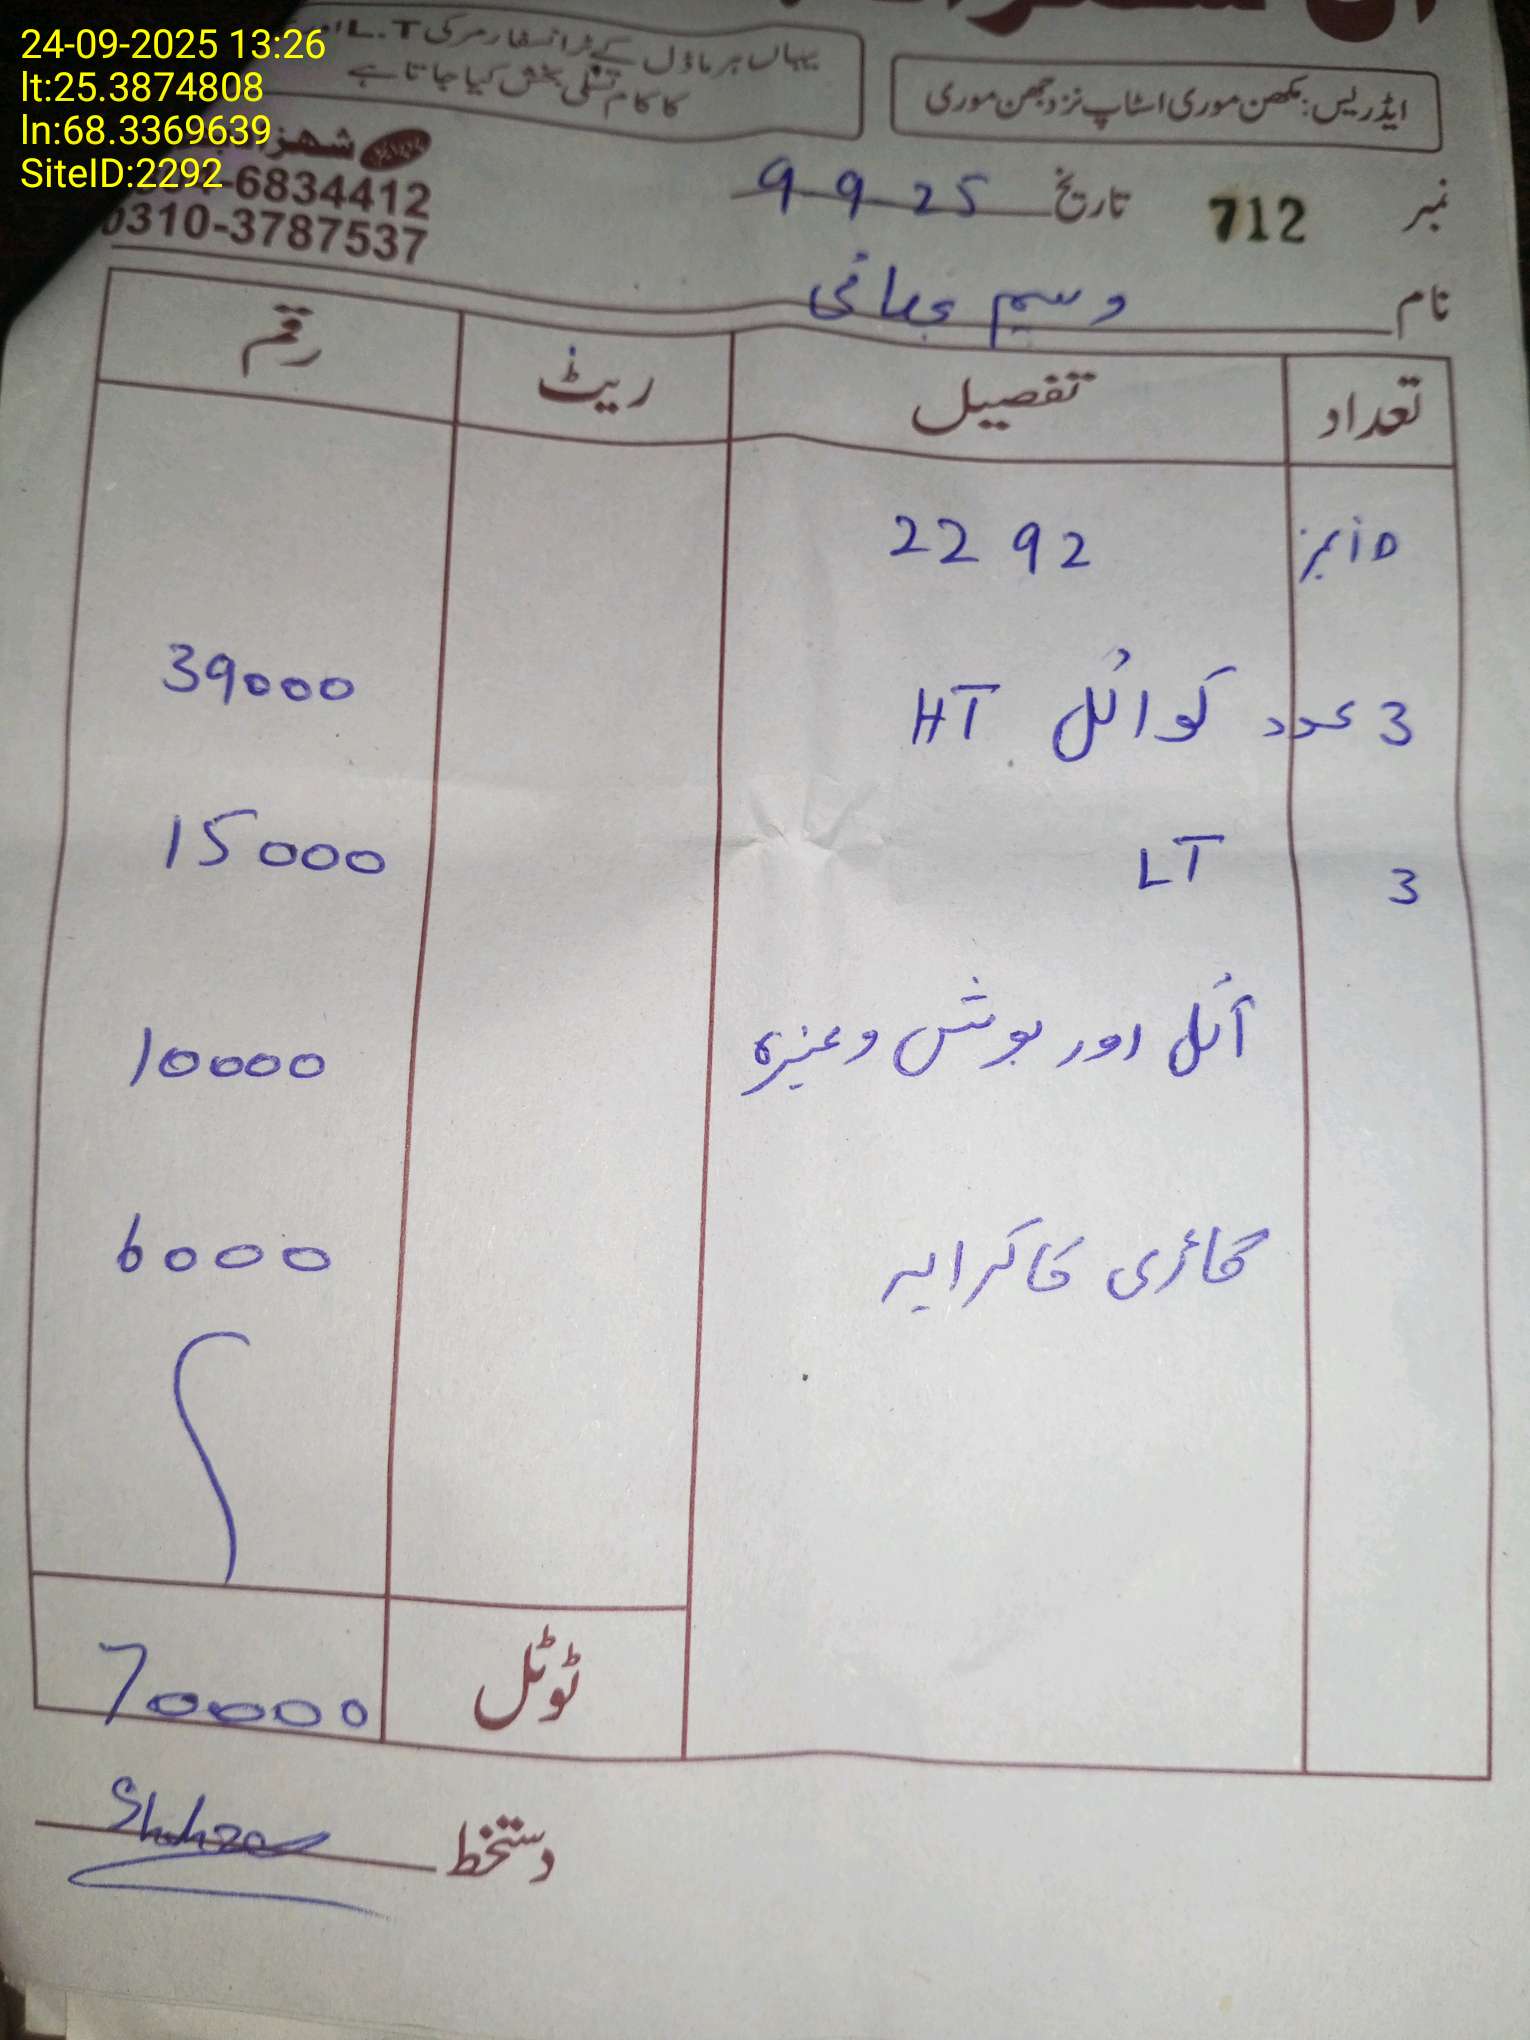 24-09-2025 13:26
lt:25.3874808
ln:68.3369639
SiteID:2292
یہاں ہر ماڈل کے ٹرانسفارمر کی L.T
کا کام تسلی بخش کیا جاتا ہے
ایڈریس: مکھن موری اسٹاپ نزد جھن موری
-6834412
0310-3787537
نمبر 712 تاریخ 9-9-25
نام وسیم بھائی
تعداد تفصیل ریٹ رقم
ID نمبر 2292
3 عدد کوائل HT 39000
3 LT 15000
آئل اور بوش وغیرہ 10000
گاڑی کا کرایہ 6000
ٹوٹل 70000
دستخط